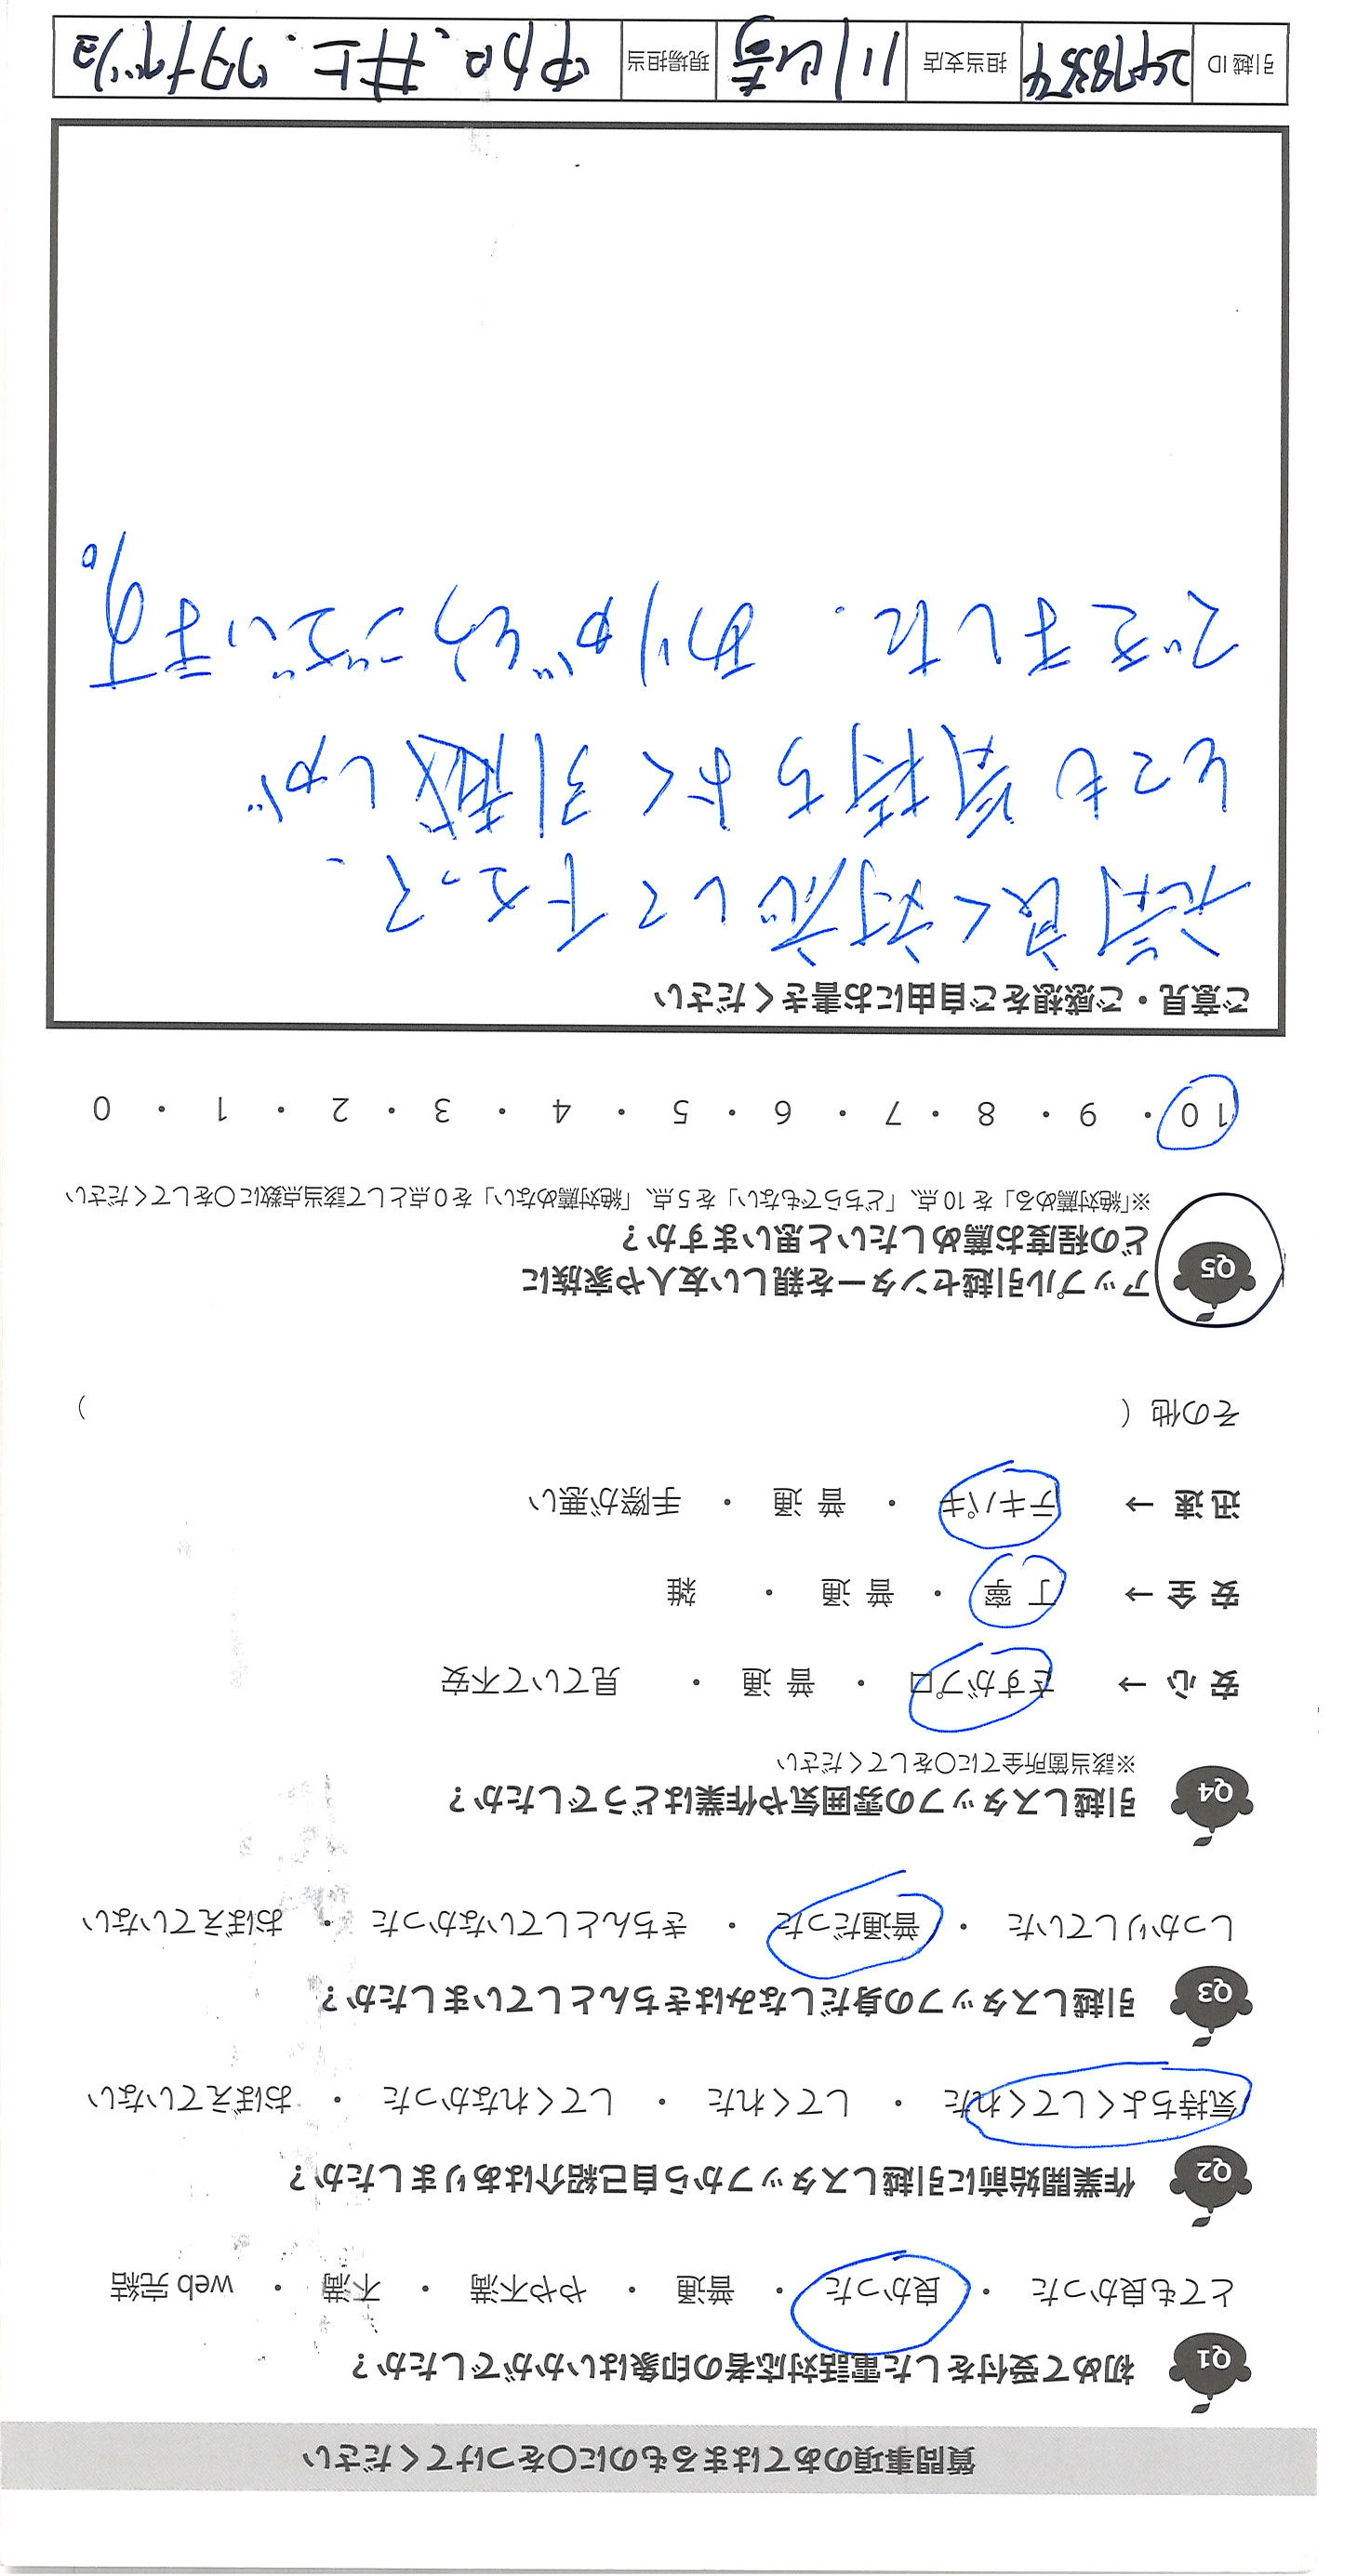 質問事項のあてはまるものに○をつけてください
Q1 初めて受付をした電話対応者の印象はいかがでしたか？
とても良かった ・ 良かった ・ 普通 ・ やや不満 ・ 不満 ・ web完結
Q2 作業開始前に引越しスタッフから自己紹介はありましたか？
気持ちよくしてくれた ・ してくれた ・ してくれなかった ・ おぼえていない
Q3 引越しスタッフの身だしなみはきちんとしていましたか？
しっかりしていた ・ 普通だった ・ きちんとしていなかった ・ おぼえていない
Q4 引越しスタッフの雰囲気や作業はどうでしたか？
※該当箇所全てに○をしてください
安心 → さすがプロ ・ 普通 ・ 見ていて不安
安全 → 丁寧 ・ 普通 ・ 雑
迅速 → テキパキ ・ 普通 ・ 手際が悪い
その他（ ）
Q5 アップル引越センターを親しい友人や家族に
どの程度お薦めしたいと思いますか？
※「絶対薦める」を10点、「どちらでもない」を5点、「絶対薦めない」を0点として該当点数に○をしてください
10 ・ 9 ・ 8 ・ 7 ・ 6 ・ 5 ・ 4 ・ 3 ・ 2 ・ 1 ・ 0
ご意見・ご感想をご自由にお書きください
良く対応して下さって、
とても気持ちよく引越しが
できました。ありがとうございます。
引越ID 担当支店 川崎 現場担当 井上.